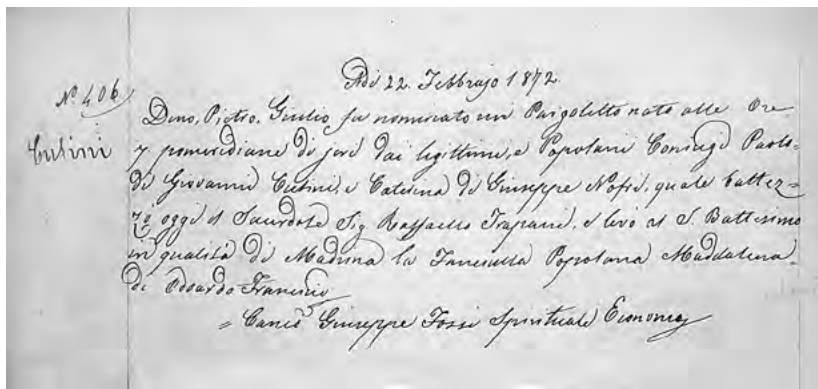 Adì 22. Febbrajo 1872.
N.º 406
Dino, Pietro, Giulio fu nominato un Pargoletto nato alle Ore
Cutini
7 pomeridiane di jeri dai legittimi, e Popolani Coniugi Paolo
di Giovanni Cutini, e Caterina di Giuseppe Nofri, quale battez=
zò oggi il Sacerdote Sig Raffaello Trapani, e levò al S. Battesimo
in qualità di Madrina la Fanciulla Popolana Maddalena
di Edoardo
= Canco Giuseppe Fossi Spirituale Economo